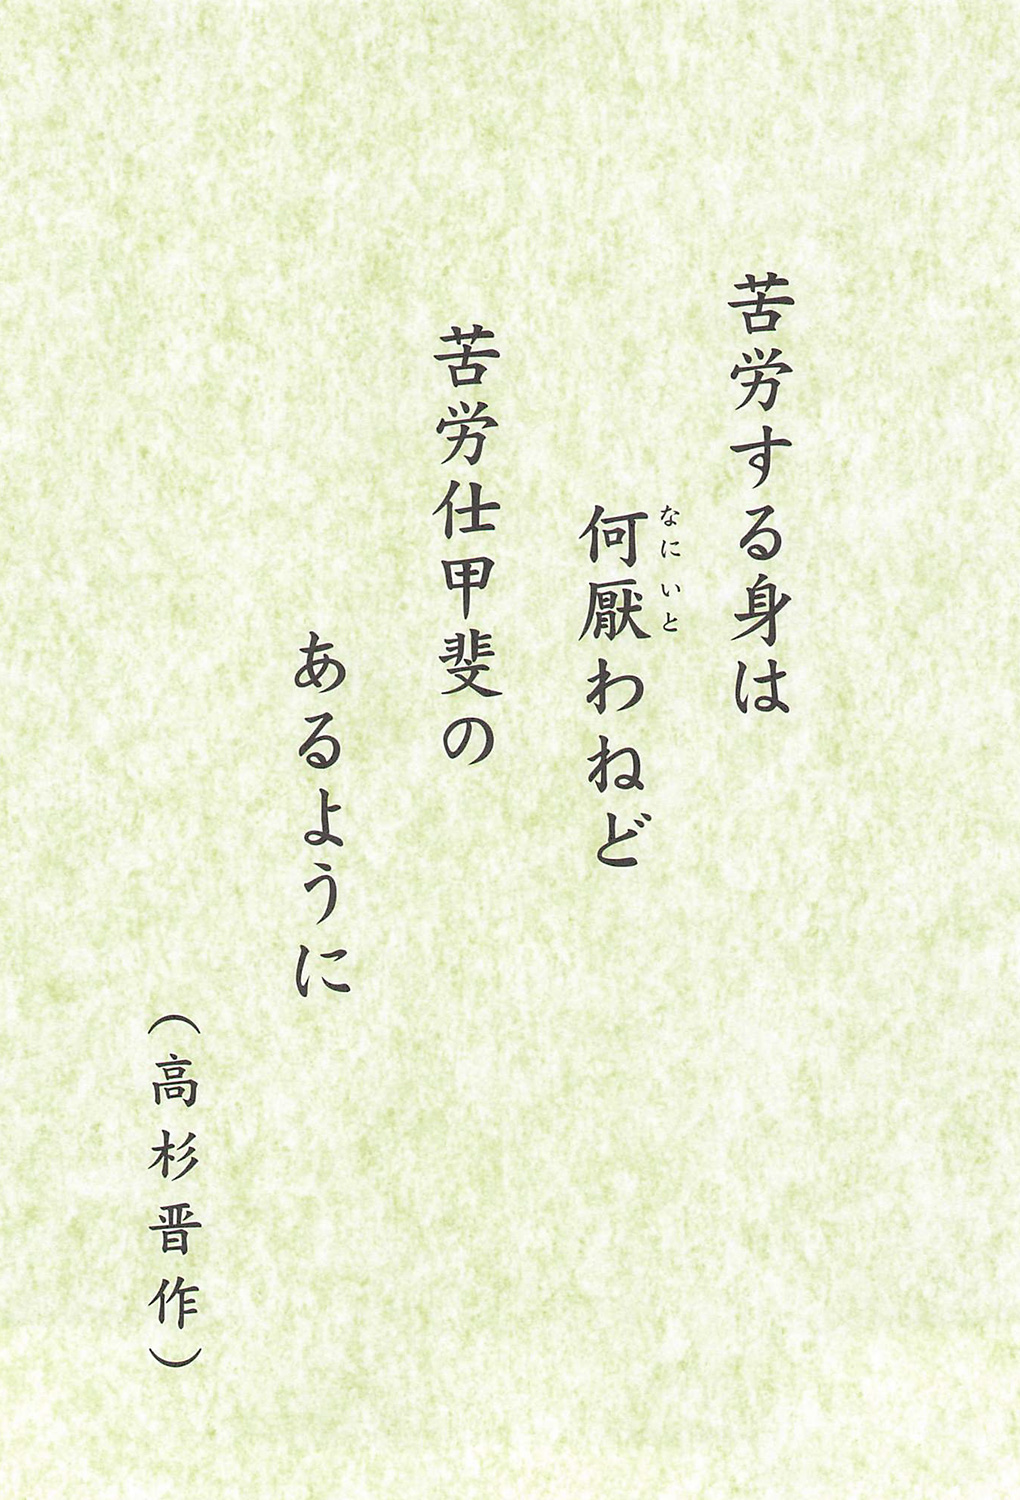 苦労する身は
何厭わねど
なにいと
苦労仕甲斐の
あるように
（高杉晋作）